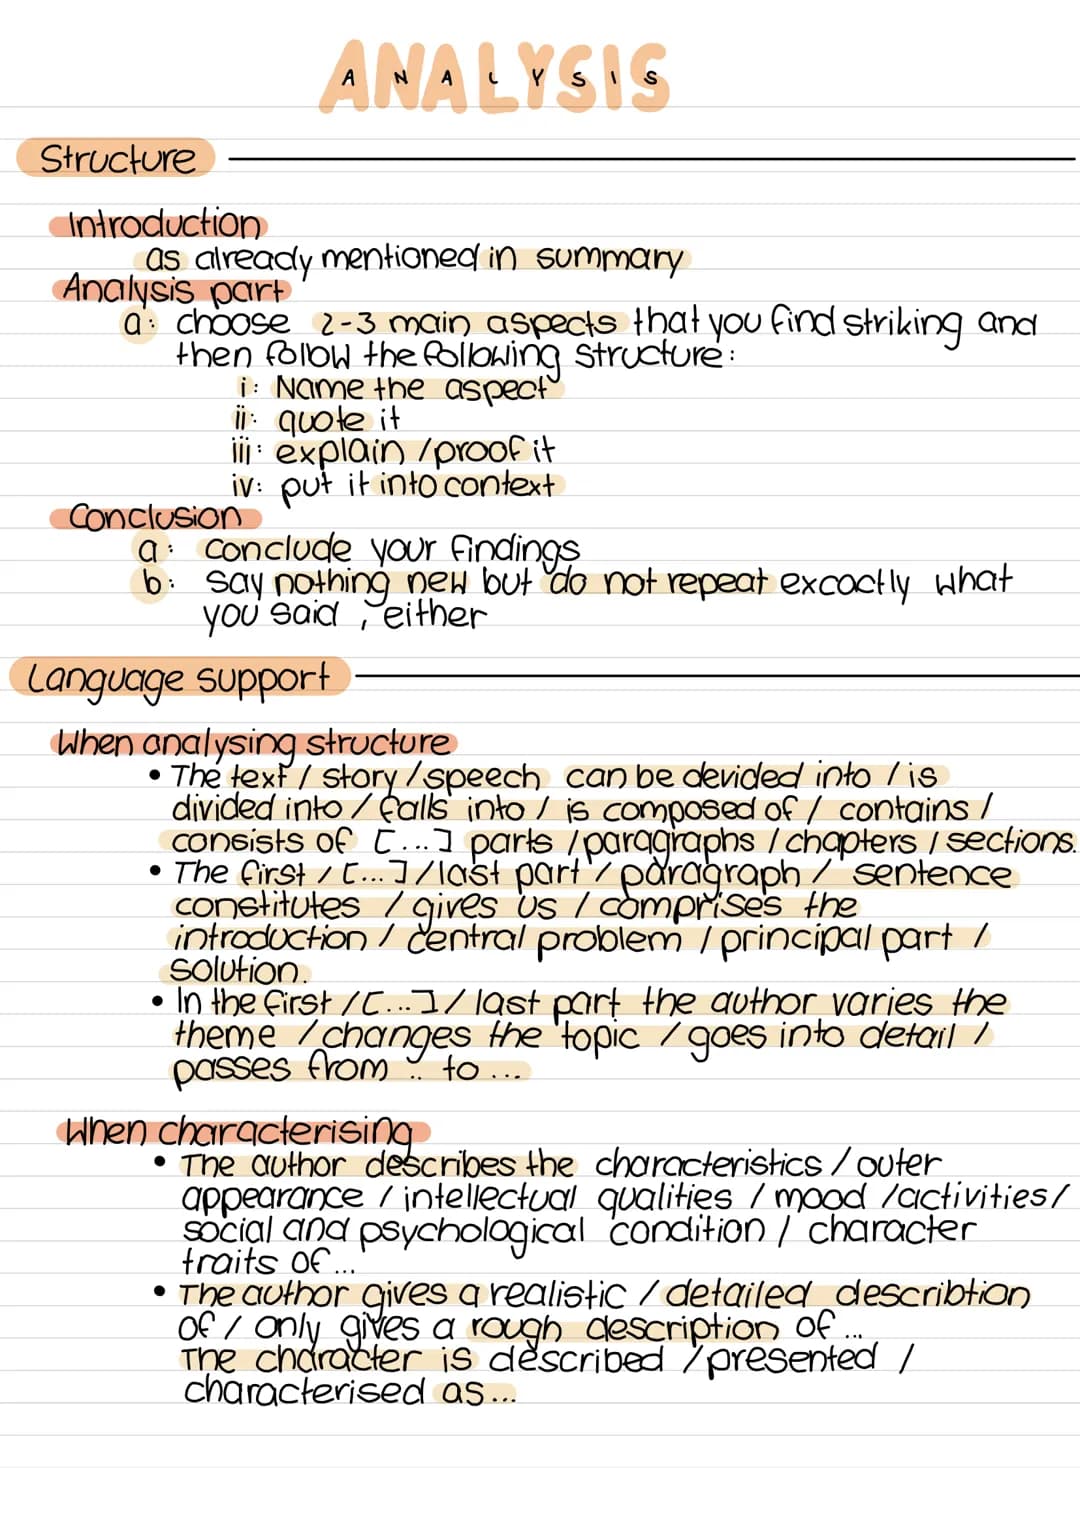 ANALYSIS
Structure
Introduction
as already mentioned in summary
Analysis part
a: choose 2-3 main aspects that you find striking and
then follow the following structure:
i: Name the aspect
ii: quote it
iii: explain / proof it
iv: put it into context
Conclusion
a: conclude your findings
b: say nothing new but do not repeat excactly what
you said, either
Language support
When analysing structure
• The text / story / speech can be devided into / is
divided into / falls into / is composed of / contains /
consists of [...] parts / paragraphs / chapters / sections.
• The first / [...] / last part / paragraph / sentence
constitutes / gives us / comprises the
introduction / central problem / principal part /
solution.
• In the first / [...] / last part the author varies the
theme / changes the topic / goes into detail /
passes from .. to ...
When characterising
• The author describes the characteristics / outer
appearance / intellectual qualities / mood / activities /
social and psychological condition / character
traits of ...
• The author gives a realistic / detailed describtion
of / only gives a rough description of ...
The character is described / presented /
characterised as ...